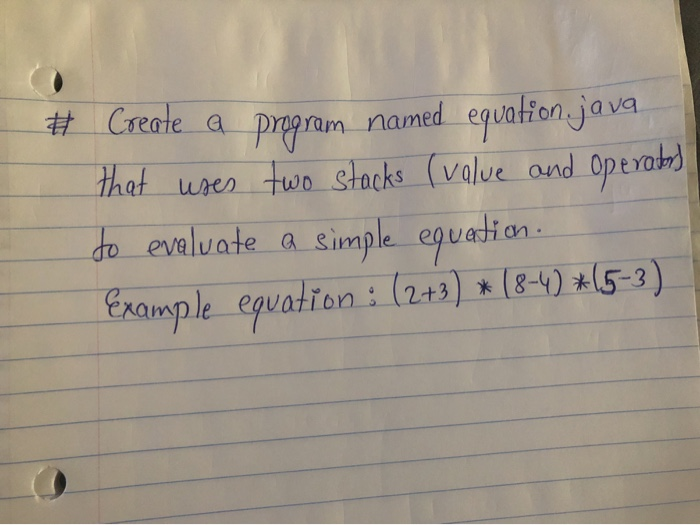 # Create a program named equation.java
that uses two stacks (value and Operator)
to evaluate a simple equation.
Example equation : (2+3) * (8-4) *(5-3)